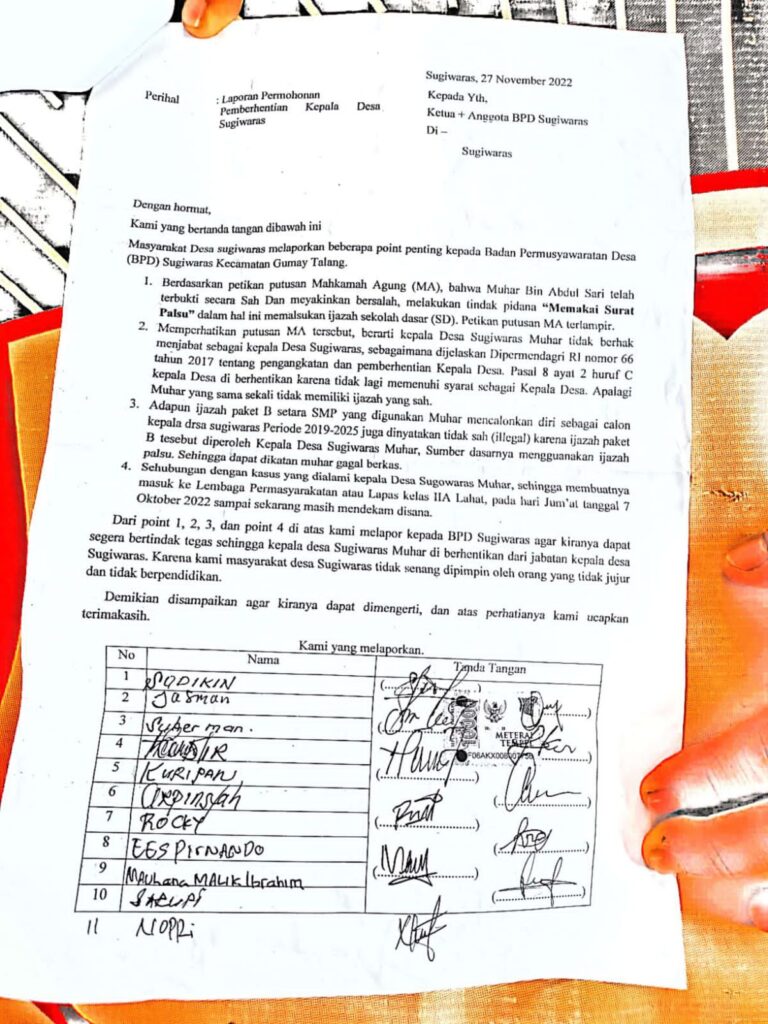 Sugiwaras, 27 November 2022
Kepada Yth,
Ketua + Anggota BPD Sugiwaras
Di –
Sugiwaras
Perihal : Laporan Permohonan
Pemberhentian Kepala Desa
Sugiwaras
Dengan hormat,
Kami yang bertanda tangan dibawah ini
Masyarakat Desa sugiwaras melaporkan beberapa point penting kepada Badan Permusyawaratan Desa
(BPD) Sugiwaras Kecamatan Gumay Talang.
1. Berdasarkan petikan putusan Mahkamah Agung (MA), bahwa Muhar Bin Abdul Sari telah
terbukti secara Sah Dan meyakinkan bersalah, melakukan tindak pidana “Memakai Surat
Palsu” dalam hal ini memalsukan ijazah sekolah dasar (SD). Petikan putusan MA terlampir.
2. Memperhatikan putusan MA tersebut, berarti kepala Desa Sugiwaras Muhar tidak berhak
menjabat sebagai kepala Desa Sugiwaras, sebagaimana dijelaskan Dipermendagri RI nomor 66
tahun 2017 tentang pengangkatan dan pemberhentian Kepala Desa. Pasal 8 ayat 2 huruf C
kepala Desa di berhentikan karena tidak lagi memenuhi syarat sebagai Kepala Desa. Apalagi
Muhar yang sama sekali tidak memiliki ijazah yang sah.
3. Adapun ijazah paket B setara SMP yang digunakan Muhar mencalonkan diri sebagai calon
kepala drsa sugiwaras Periode 2019-2025 juga dinyatakan tidak sah (illegal) karena ijazah paket
B tesebut diperoleh Kepala Desa Sugiwaras Muhar, Sumber dasarnya mengguanakan ijazah
palsu. Sehingga dapat dikatan muhar gagal berkas.
4. Sehubungan dengan kasus yang dialami kepala Desa Sugowaras Muhar, sehingga membuatnya
masuk ke Lembaga Permasyarakatan atau Lapas kelas IIA Lahat, pada hari Jum’at tanggal 7
Oktober 2022 sampai sekarang masih mendekam disana.
Dari point 1, 2, 3, dan point 4 di atas kami melapor kepada BPD Sugiwaras agar kiranya dapat
segera bertindak tegas sehingga kepala desa Sugiwaras Muhar di berhentikan dari jabatan kepala desa
Sugiwaras. Karena kami masyarakat desa Sugiwaras tidak senang dipimpin oleh orang yang tidak jujur
dan tidak berpendidikan.
Demikian disampaikan agar kiranya dapat dimengerti, dan atas perhatianya kami ucapkan
terimakasih.
Kami yang melaporkan.
No Nama Tanda Tangan
1 SODIKIN
2 Jasman
3 Suherman.
4
5 KURIPAN
6 ARDIANSyah
7 ROCKY
8 EGS PIRNANDO
9 MAULANA MALIK Ibrahim
10 SARUPI
11 NOPRi
METERAI
TEMPEL